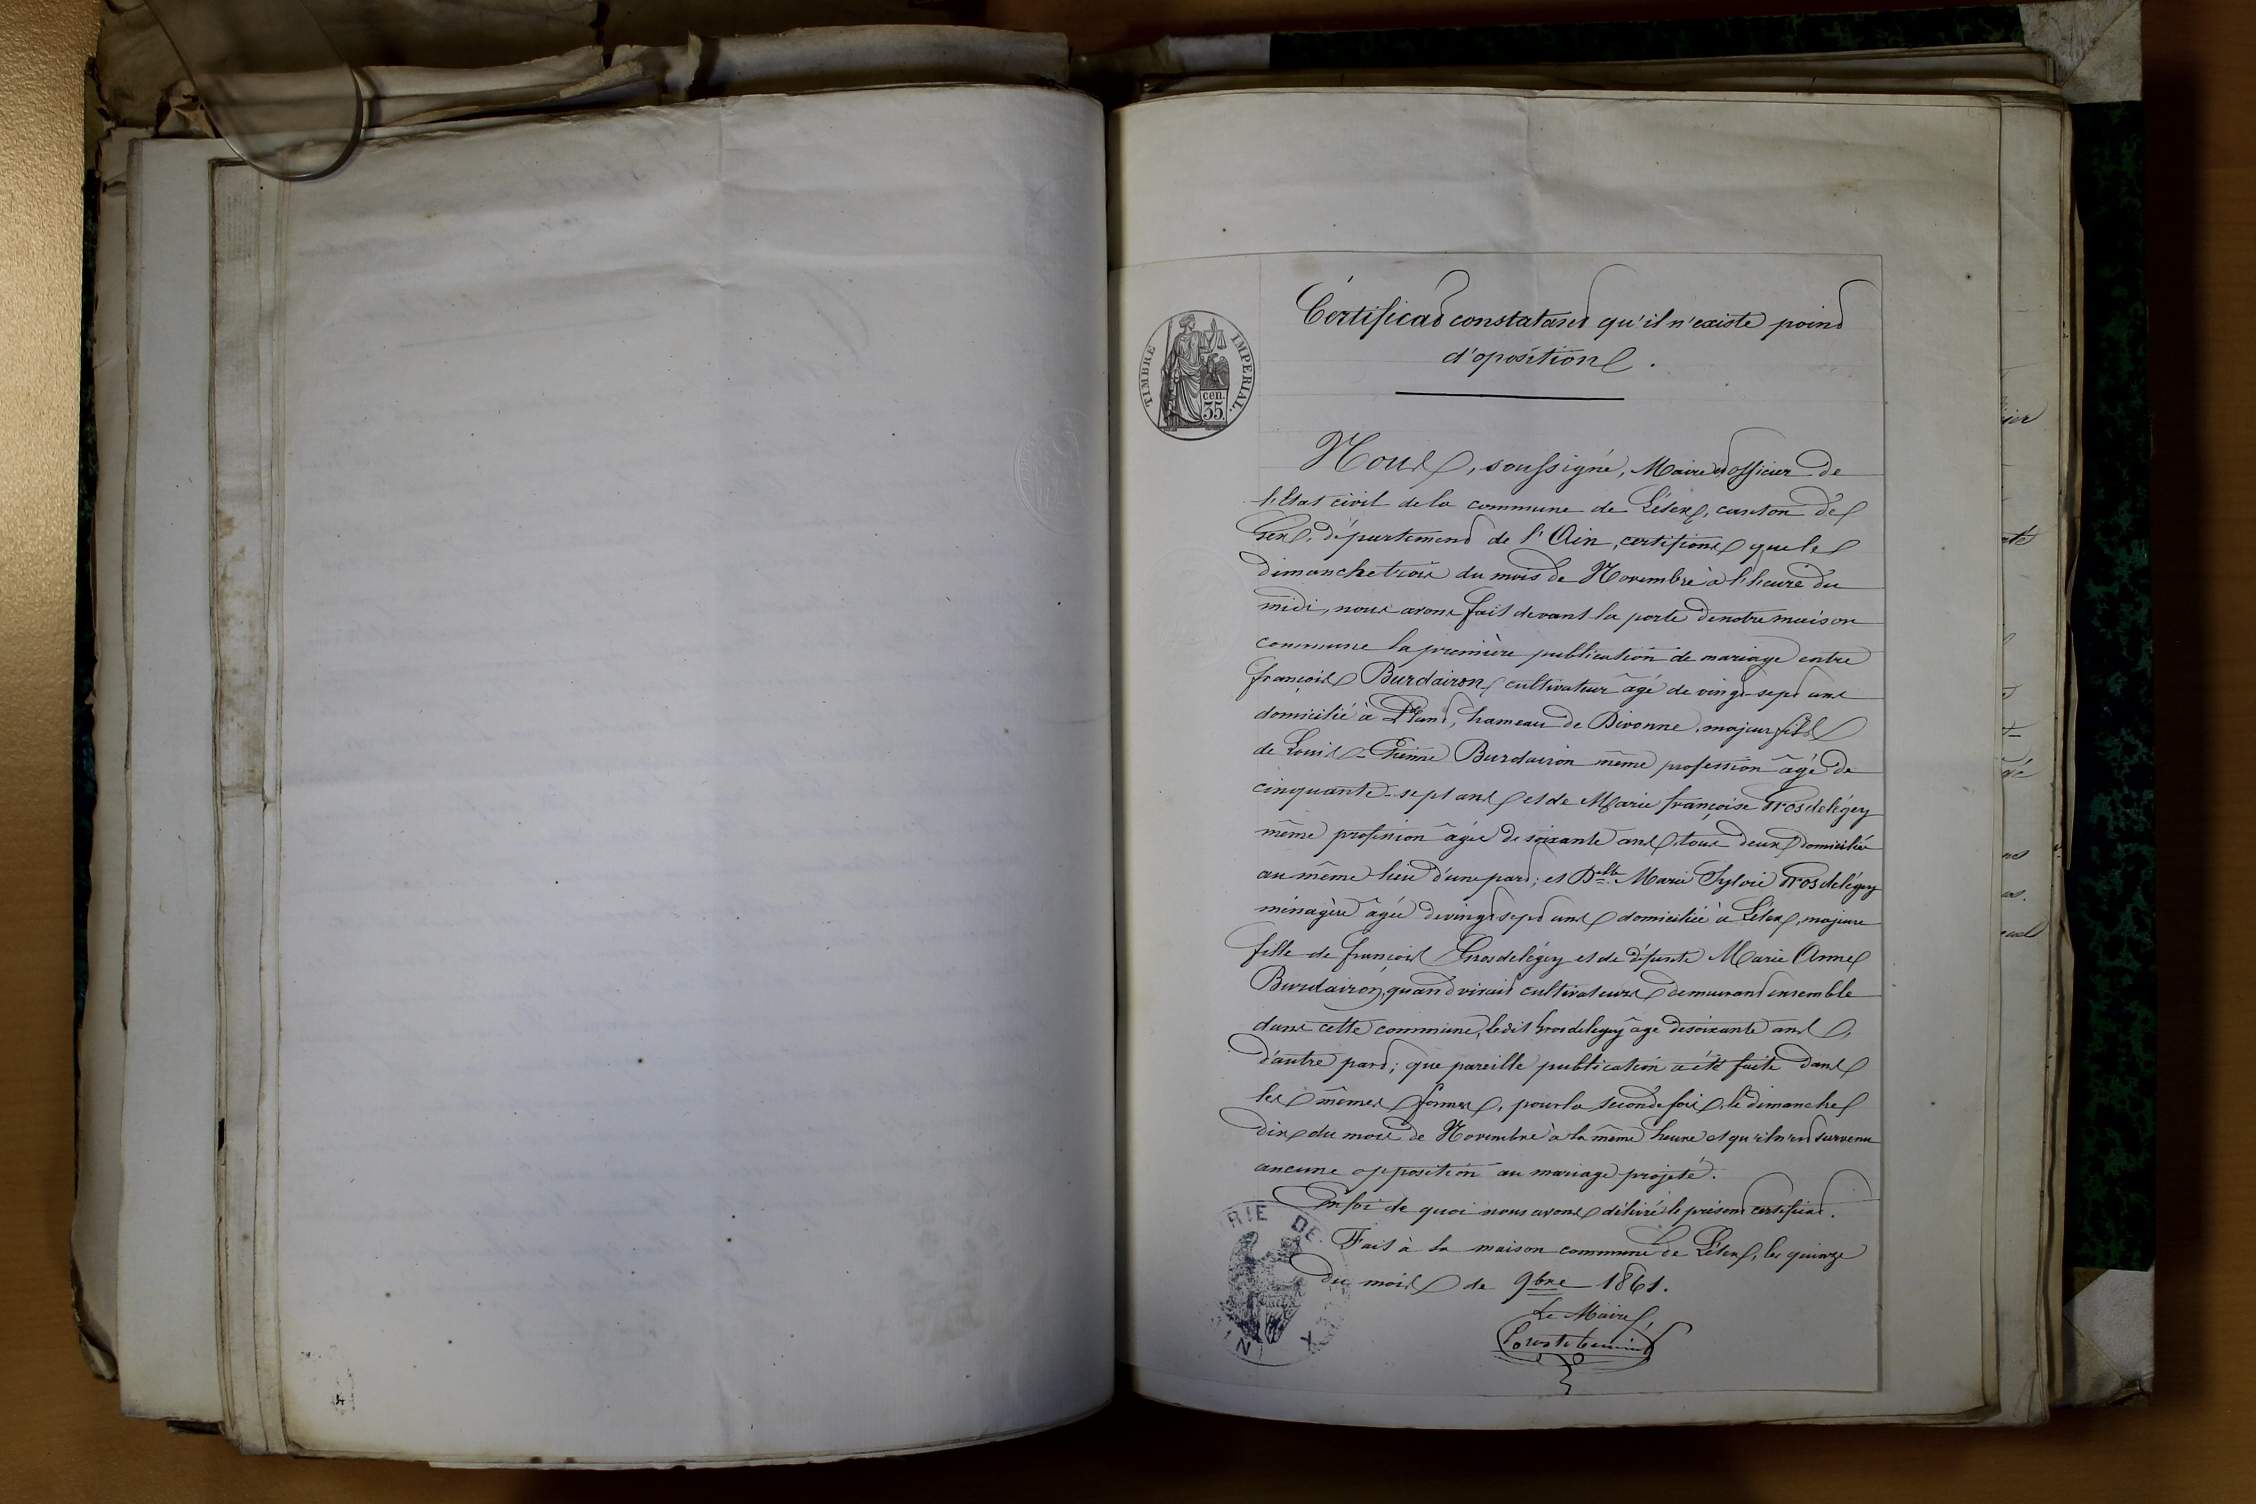 Certificat constatant qu'il n'existe point
d'oposition.
TIMBRE IMPERIAL.
cen.
35.
Nous, soussigné, Maire et officier de
l'Etat civil de la commune de Lélex, canton de
Gex, département de l'Ain, certifions que le
dimanche trois du mois de Novembre à l'heure du
midi, nous avons fait devant la porte de notre maison
commune la première publication de mariage entre
françois Burdairon, cultivateur âgé de vingt-sept ans
domicilié à Plans, hameau de Divonne, majeur fils
de Louis-Etienne Burdairon même profession âgé de
cinquante-sept ans et de Marie françoise Grosdelégey
même profession âgée de soixante ans, tous deux domiciliés
au même lieu d'une part; et Delle Marie Sylvie Grosdelégey
ménagère âgée de vingt sept ans domiciliée à Lélex, majeure
fille de françois Grosdelégey et de défunte Marie Anne
Burdairon, quand vivait cultivateurs demeurant ensemble
dans cette commune, ledit Grosdelegey âgé de soixante ans,
d'autre part; que pareille publication a été faite dans
les mêmes formes, pour la seconde fois, le dimanche
dix du mois de Novembre à la même heure et qu'il n'est survenu
aucune opposition au mariage projeté.
En foi de quoi nous avons délivré le présent certificat.
Fait à la maison commune de Lélex, les quinze
du mois de 9bre 1861.
Le Maire
RIE DE